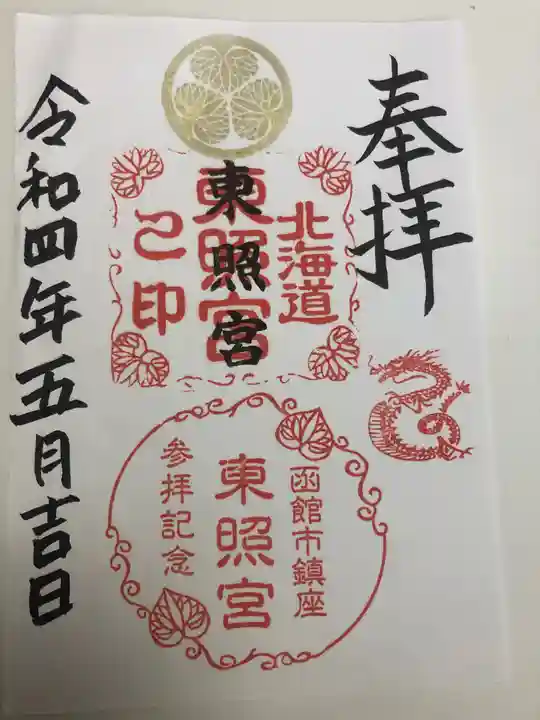 奉拝
北海道
東照宮
東照宮
之印
函館市鎮座
東照宮
参拝記念
令和四年五月吉日